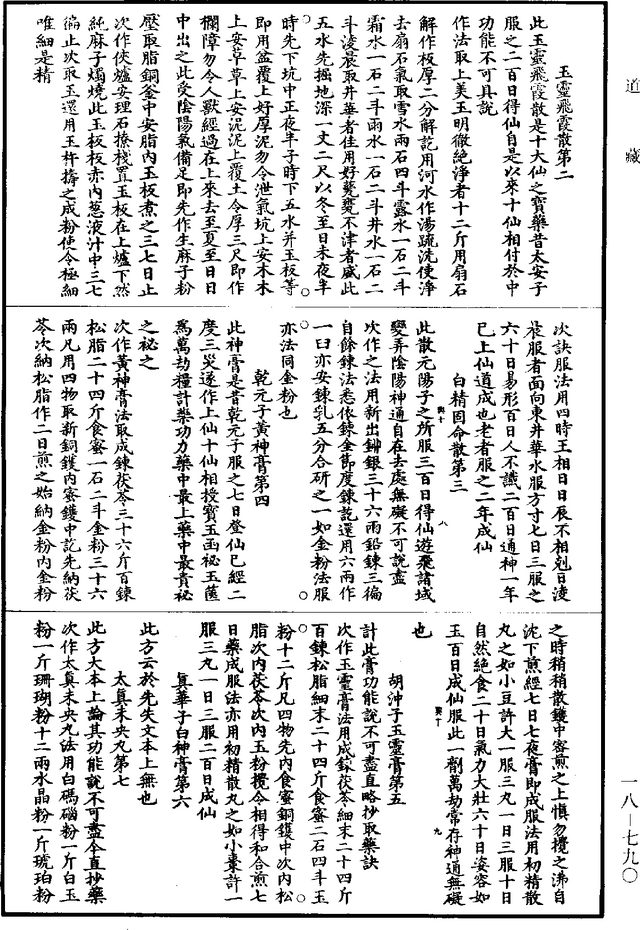 道藏
玉靈飛霞散第二
此玉靈飛霞散是十大仙之寶藥昔太安子
服之二百日得仙自是以來十仙相付於中
功能不可具說
作法取上美玉明徹絕淨者十二斤用扇石
解作板厚二分解訖用河水作湯疏洗使淨
去扇石氣取雪水兩石四斗露水一石二斗
霜水一石二斗雨水一石二斗井水一石二
斗淩晨取井華者佳用好甕甕不津者盛此
五水先掘地深一丈二尺以冬至日未夜半
時先下坑中正夜半子時下五水并玉板等
即用盆覆上好厚泥勿令泄氣坑上安木木
上安草草上安泥泥上覆土令厚三尺即作
欄障勿令人獸經過在上來去至夏至日日
中出之此受陰陽氣備足即先作生麻子粉
壓取脂銅釜中安脂內玉板煮之三七日止
次作伏爐安理石擽棧置玉板在上爐下然
純麻子燭燒此玉板板赤內葱液汁中三七
徧止次取玉還用玉杵擣之成粉使令極細
唯細是精
次訣服法用四時王相日日辰不相剋日淩
晨服者面向東井華水服方寸七日三服之
六十日易形百日人不識二百日通神一年
已上仙道成也老者服之二年成仙
白精固命散第三
此散元陽子之所服三百日得仙遊飛諸域
變弄陰陽神通自在去處無礙不可說盡
次作之法用新出鉚銀三十六兩鉛鍊三徧
自餘鍊法悉依鍊金節度鍊訖還用六兩作
一曰亦安鍊乳五分合研之一如金粉法服
亦法同金粉也
乾元子黃神膏第四
此神膏是昔乾元子服之七日登仙已經二
度三災遂作上仙十仙相授寶玉函祕玉篋
爲萬劫糧計藥功力藥中最上藥中最貴祕
之祕之
次作黃神膏法取成鍊茯苓三十六斤百鍊
松脂二十四斤食蜜一石二斗金粉三十六
兩凡用四物取新銅鑊內蜜鑊中訖先納茯
苓次納松脂作二日煎之始納金粉內金粉
之時稍稍散鑊中密煎之上愼勿攪之沸自
沈下煎經七日七夜膏即成服法用初精散
丸之如小豆許大一服三丸一日三服十日
自然絕食二十日氣力大壯六十日姿容如
玉百日成仙服此一劑萬劫常存神通無礙
也
胡沖子玉靈膏第五
計此膏功能說不可盡直略抄取藥訣
次作玉靈膏法用成鍊茯苓細末二十四斤
百鍊松脂細末二十四斤食蜜二石四斗玉
粉十二斤凡四物先內食蜜銅鑊中次內松
脂次內茯苓次內玉粉攪令相得和合煎七
日藥成服法亦用初精散丸之如小棗許一
服三丸一日三服二百日成仙
真華子白神膏第六
此方云於先失文本上無也
太真未央丸第七
此方大本上論其功能說不可盡今直抄藥
次作太真未央丸法用白碼碯粉一斤白玉
粉一斤珊瑚粉十二兩水晶粉一斤琥珀粉
一八-七九〇